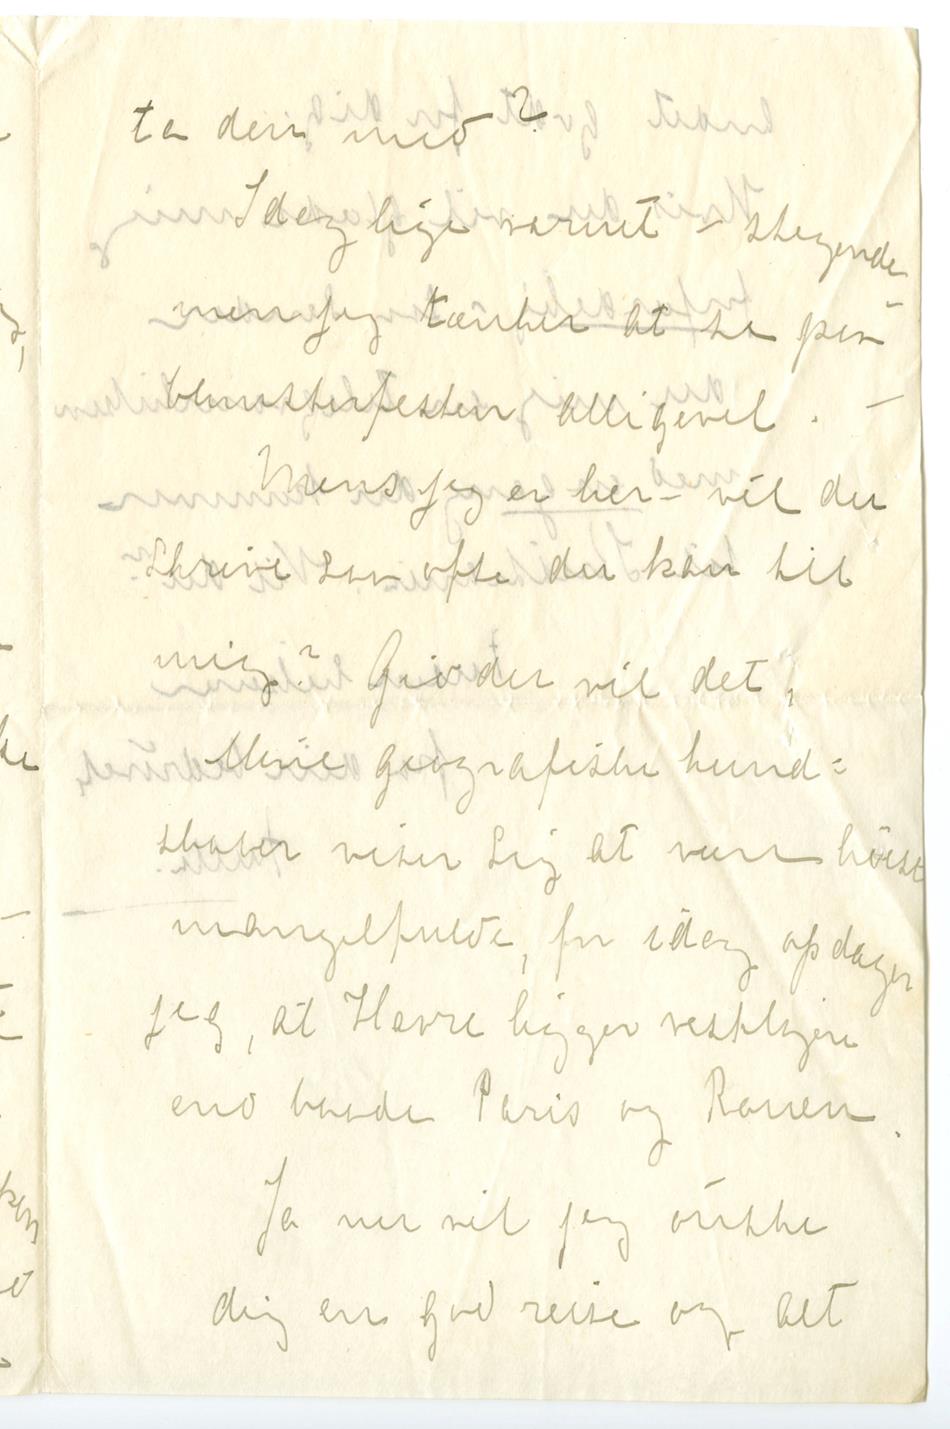 ta den med?
Idag lige varmt – stegende
men jeg tænker at se paa
blomsterfesten alligevel. –
Mens jeg er her – vil du
skrive saa ofte du kan til
mig? Giv du vil det,
Mine geografiske kund=
skaber viser sig at være høist
mangelfulde, for idag opdager
jeg, at Havre ligger vestligere
end baade Paris og Rouen.
Ja nu vil jeg ønske
dig en god reise og alt